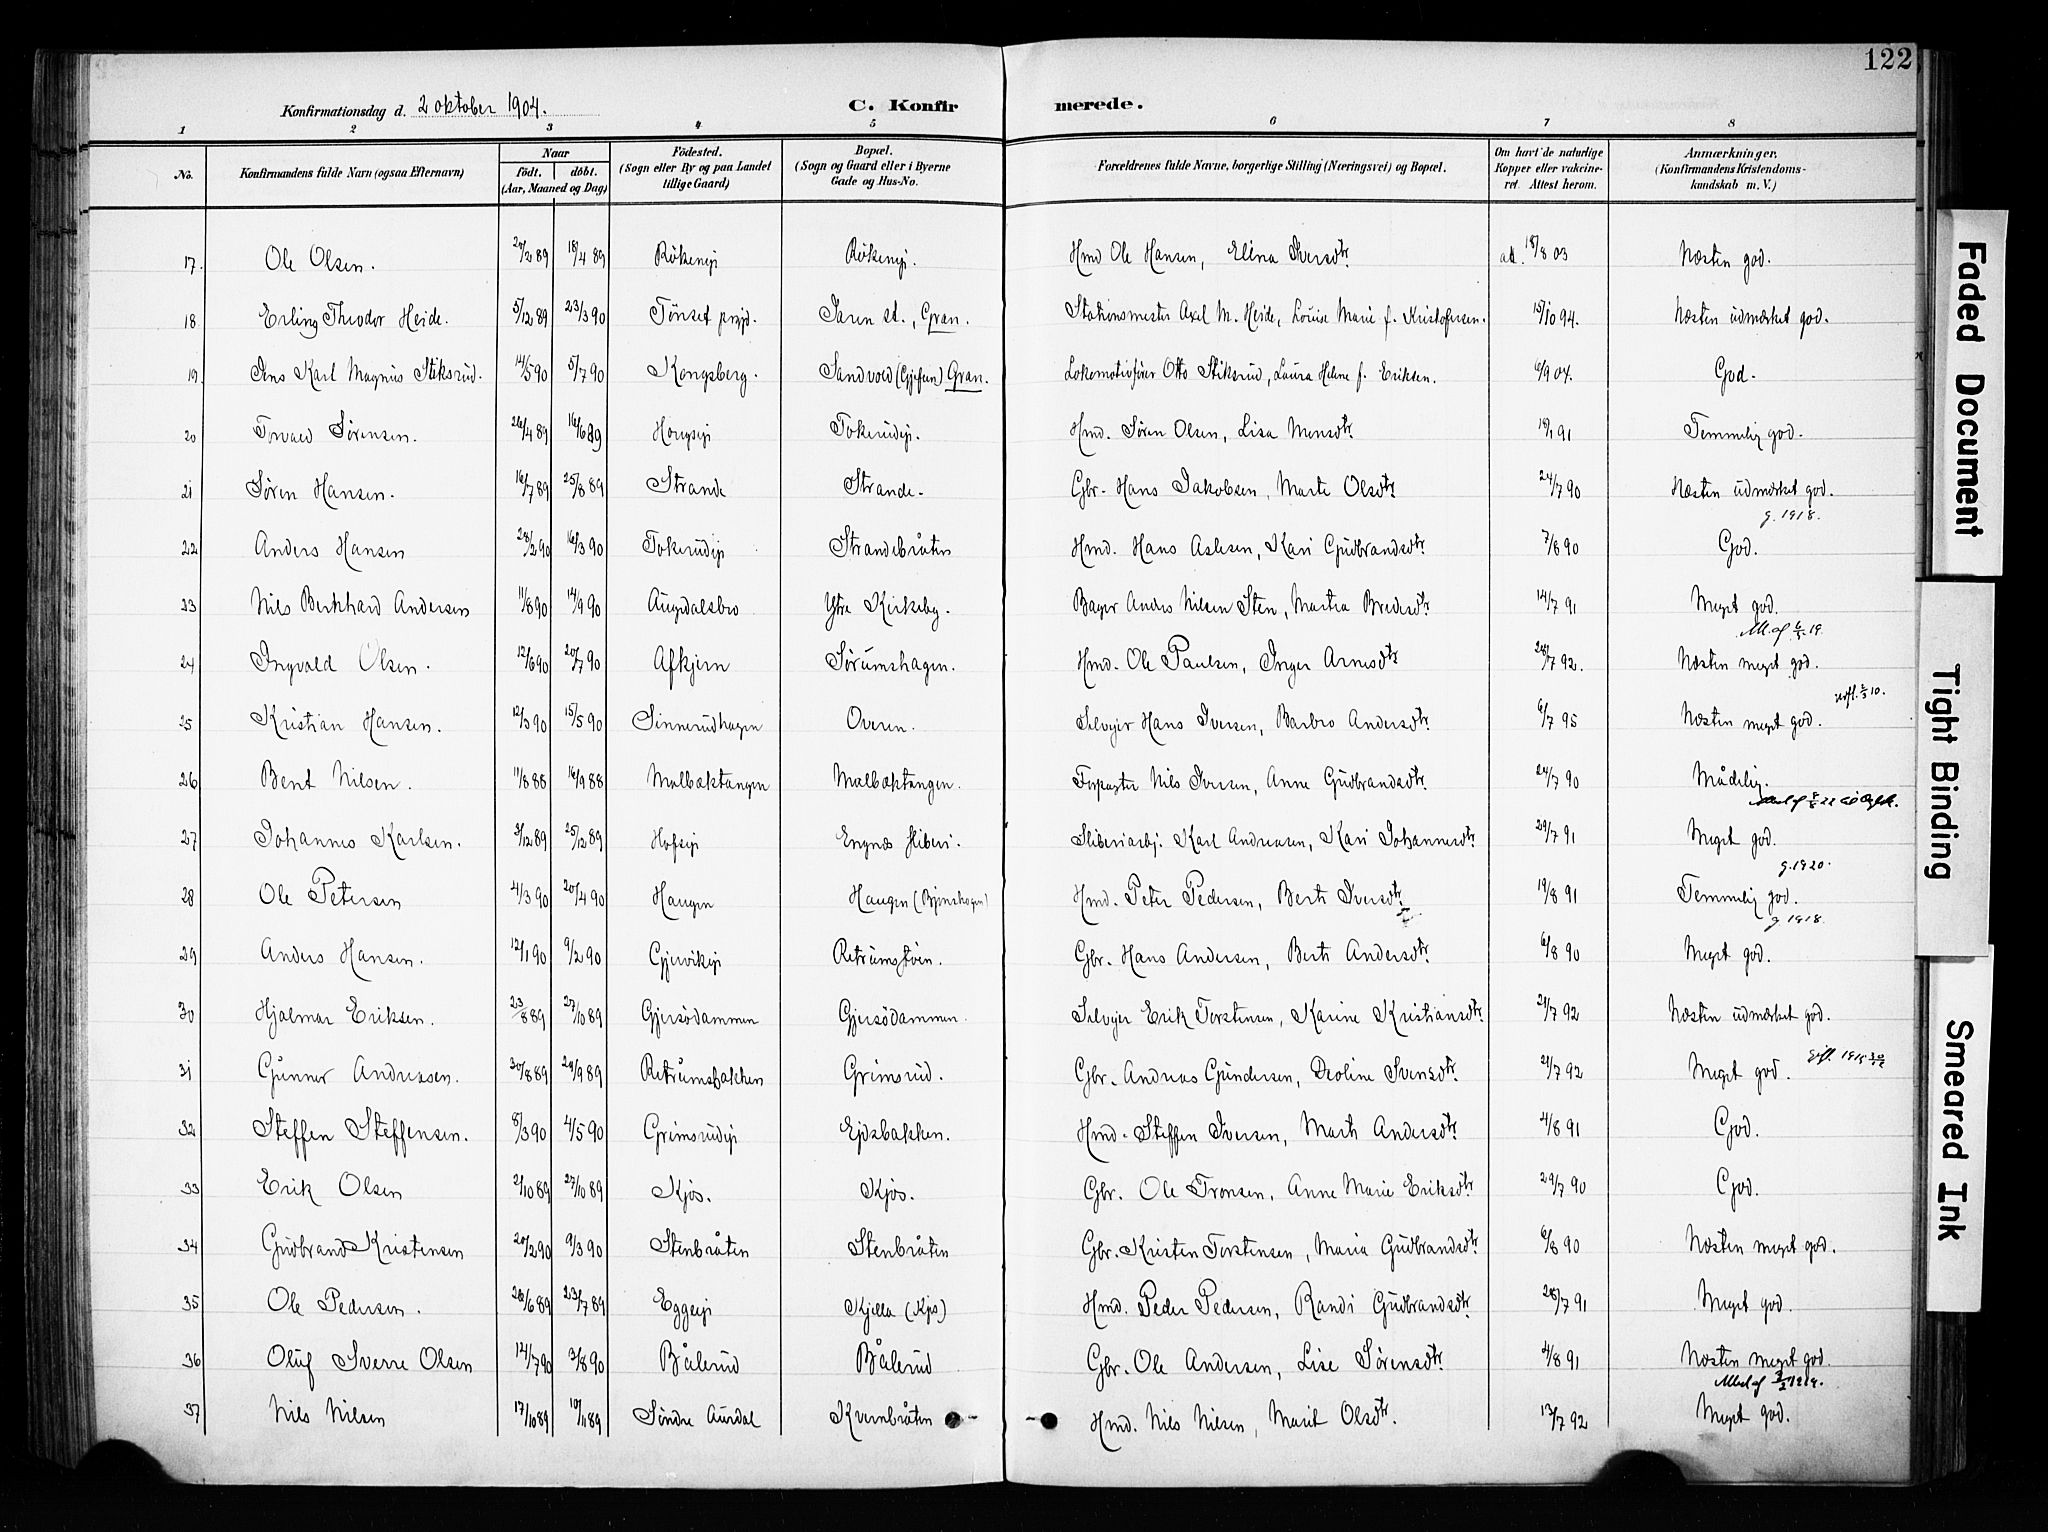 122
Konfirmationsdag d. 2 oktober 1904. C. Konfirmerede.
1 2 3 4 5 6 7 8
No. Konfirmandens fulde Navn (ogsaa Efternavn) Naar födt. döbt. (Aar, Maaned og Dag) Födested. (Sogn eller By og paa Landet tillige Gaard) Bopæl. (Sogn og Gaard eller i Byerne Gade og Hus-No. Forældrenes fulde Navne, borgerlige Stilling (Næringsvei) og Bopæl. Om havt de naturlige Kopper eller vakcineret. Attest herom. Anmærkninger. (Konfirmandens Kristendomskundskab m. V.)
17. Ole Olsen. 18/4 89 Rökeneji Rökeneji. Hmd Ole Hansen, Elina Iversdtr. att. 18/8 03 Næsten god.
18 Erling Theodor Heide. 5/12 89 23/3 90 Tönset prgjd. Jaren st., Gran. Stationsmester Axel M. Heide, Louise Marie f. Kristofersen. 15/10 94. Næsten udmærket god.
19. Jens Karl Magnus Stiksrud. 14/5 90 5/7 90 Kongsberg. Sandvold Gran. Lokomotivfører Otto Stiksrud, Laura Helene f. Eriksen. 6/9 04. God.
20 Torvald Sørensen. 26/4 89 16/6 89 Tokerudeji. Hmd. Søren Olsen, Lisa Monsdtr. 18/1 91 Temmelig god.
21 Søren Hansen. 16/7 89 25/8 89 Strande Strande. Gbr. Hans Jakobsen, Marte Olsdtr. 24/7 90 Næsten udmærket god.
g. 1918.
22 Anders Hansen 28/2 90 16/3 90 Tokerudeji Strandebråten Hmd. Hans Aslesen, Kari Gudbrandsdtr. 7/8 90 God.
23 Nils Berkhard Andersen 11/8 90 14/9 90 Augedalsbro Ytre Kirkeby. Bager Anders Nilsen Sten, Martea Bredesdtr. 14/7 91 Meget god.
24 Ingvald Olsen. 12/6 90 20/7 90 Afkjern Sørumshagen. Hmd. Ole Paulsen, Inger Arnesdtr. 28/7 92. Næsten meget god.
25 Kristian Hansen. 12/3 90 15/5 90 Sinnerudhagen Overen. Selvejer Hans Iversen, Barbro Andersdtr. 6/7 95 Næsten meget god.
26 Bent Nilsen. 11/8 88 16/9 88 Malbæktangen Malbæktangen. Forpagter Nils Iversen, Anne Gudbrandsdtr. 24/7 90 Mådelig.
27 Johannes Karlsen. 3/12 89 25/12 89 Hofseji Engnæs sliberi. Sliberiarbj. Karl Andreasen, Kari Johannesdtr. 29/7 91 Meget god.
g. 1920.
28 Ole Petersen 4/3 90 20/4 90 Haugen Haugen (Bjønshagen) Hmd. Peter Pedersen, Berte Iversdtr. 19/8 91 Temmelig god.
g. 1918.
29 Anders Hansen. 12/1 90 9/2 90 Gjervikeji Retrumstoen. Gbr. Hans Andersen, Berte Andersdtr. 6/8 90 Meget god.
30 Hjalmar Eriksen. 23/8 89 27/10 89 Gjersödammen Gjersödammen. Selvejer Erik Torstensen, Karine Kristiansdtr. 21/7 92 Næsten udmærket god.
31 Gunner Andreasen. 30/8 89 29/9 89 Retrumsbakken Grimsrud. Gbr. Andreas Gundersen, Deoline Svensdtr. 21/7 92 Meget god.
32 Steffen Steffensen. 8/3 90 4/5 90 Grimsrudeji Ejdsbakken. Hmd. Steffen Iversen, Marte Andersdtr. 4/8 91 God.
33 Erik Olsen 2/10 89 27/10 89 Kjös. Kjös. Gbr. Ole Tronsen, Anne Marie Eriksdtr. 29/7 90 God.
34 Gudbrand Kristensen 20/2 90 9/3 90 Stenbråten Stenbråten Gbr. Kristen Torstensen, Maria Gudbrandsdtr. 6/8 90 Næsten meget god.
35 Ole Pedersen. 26/6 89 23/7 89 Eggeeji Kjella (Kjös) Hmd. Peder Pedersen, Randi Gudbrandsdtr. 28/7 91 Meget god.
36 Oluf Sverre Olsen 12/7 90 3/8 90 Bålerud Bålerud Gbr. Ole Andersen, Lise Sørensdtr. 4/8 91 Næsten meget god.
37 Nils Nilsen 17/10 89 10/11 89 Söndre Aurdal Kvernbråten Hmd. Nils Nilsen, Marit Olsdtr. 13/7 92 Meget god.
Faded Document
Tight Binding
Smeared Ink